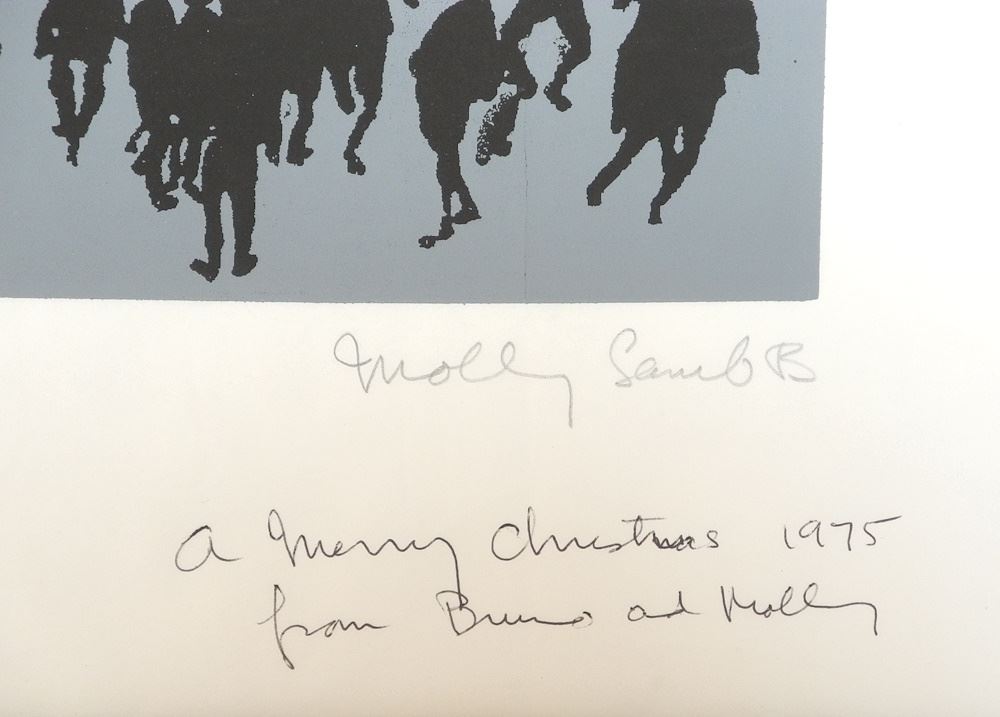 Molly Lamb B
A Merry Christmas 1975
from Bruno and Molly